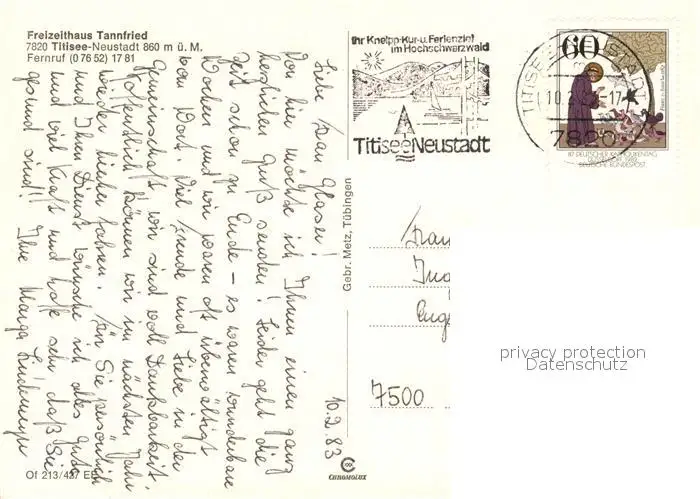 Freizeithaus Tannfried
7820 Titisee-Neustadt 860 m ü. M.
Fernruf (0 76 52) 17 81
Liebe Frau Glaser!
Von hier möchte ich Ihnen einen ganz
herzlichen Gruß senden! Leider geht die
Zeit schon zu Ende – es waren wunderbare
Wochen und wir waren oft überwältigt
vom Wort. Viel Freude und Liebe in der
Gemeinschaft, wir sind voll Dankbarkeit.
Hoffentlich können wir im nächsten Jahr
wieder hierher fahren. Für Sie persönlich
und Ihren Dienst wünsche ich alles Gute
und viel Kraft und hoffe sehr, daß Sie
gesund sind! Ihre
10.9.83
Of 213/427 EE
Gebr. Metz, Tübingen
CHROMOLUX
Ihr Kneipp-Kur-u. Ferienziel
im Hochschwarzwald
TitiseeNeustadt
60
87. DEUTSCHER KATHOLIKENTAG
DEUTSCHE BUNDESPOST
7820
Frau
7500
privacy protection
Datenschutz